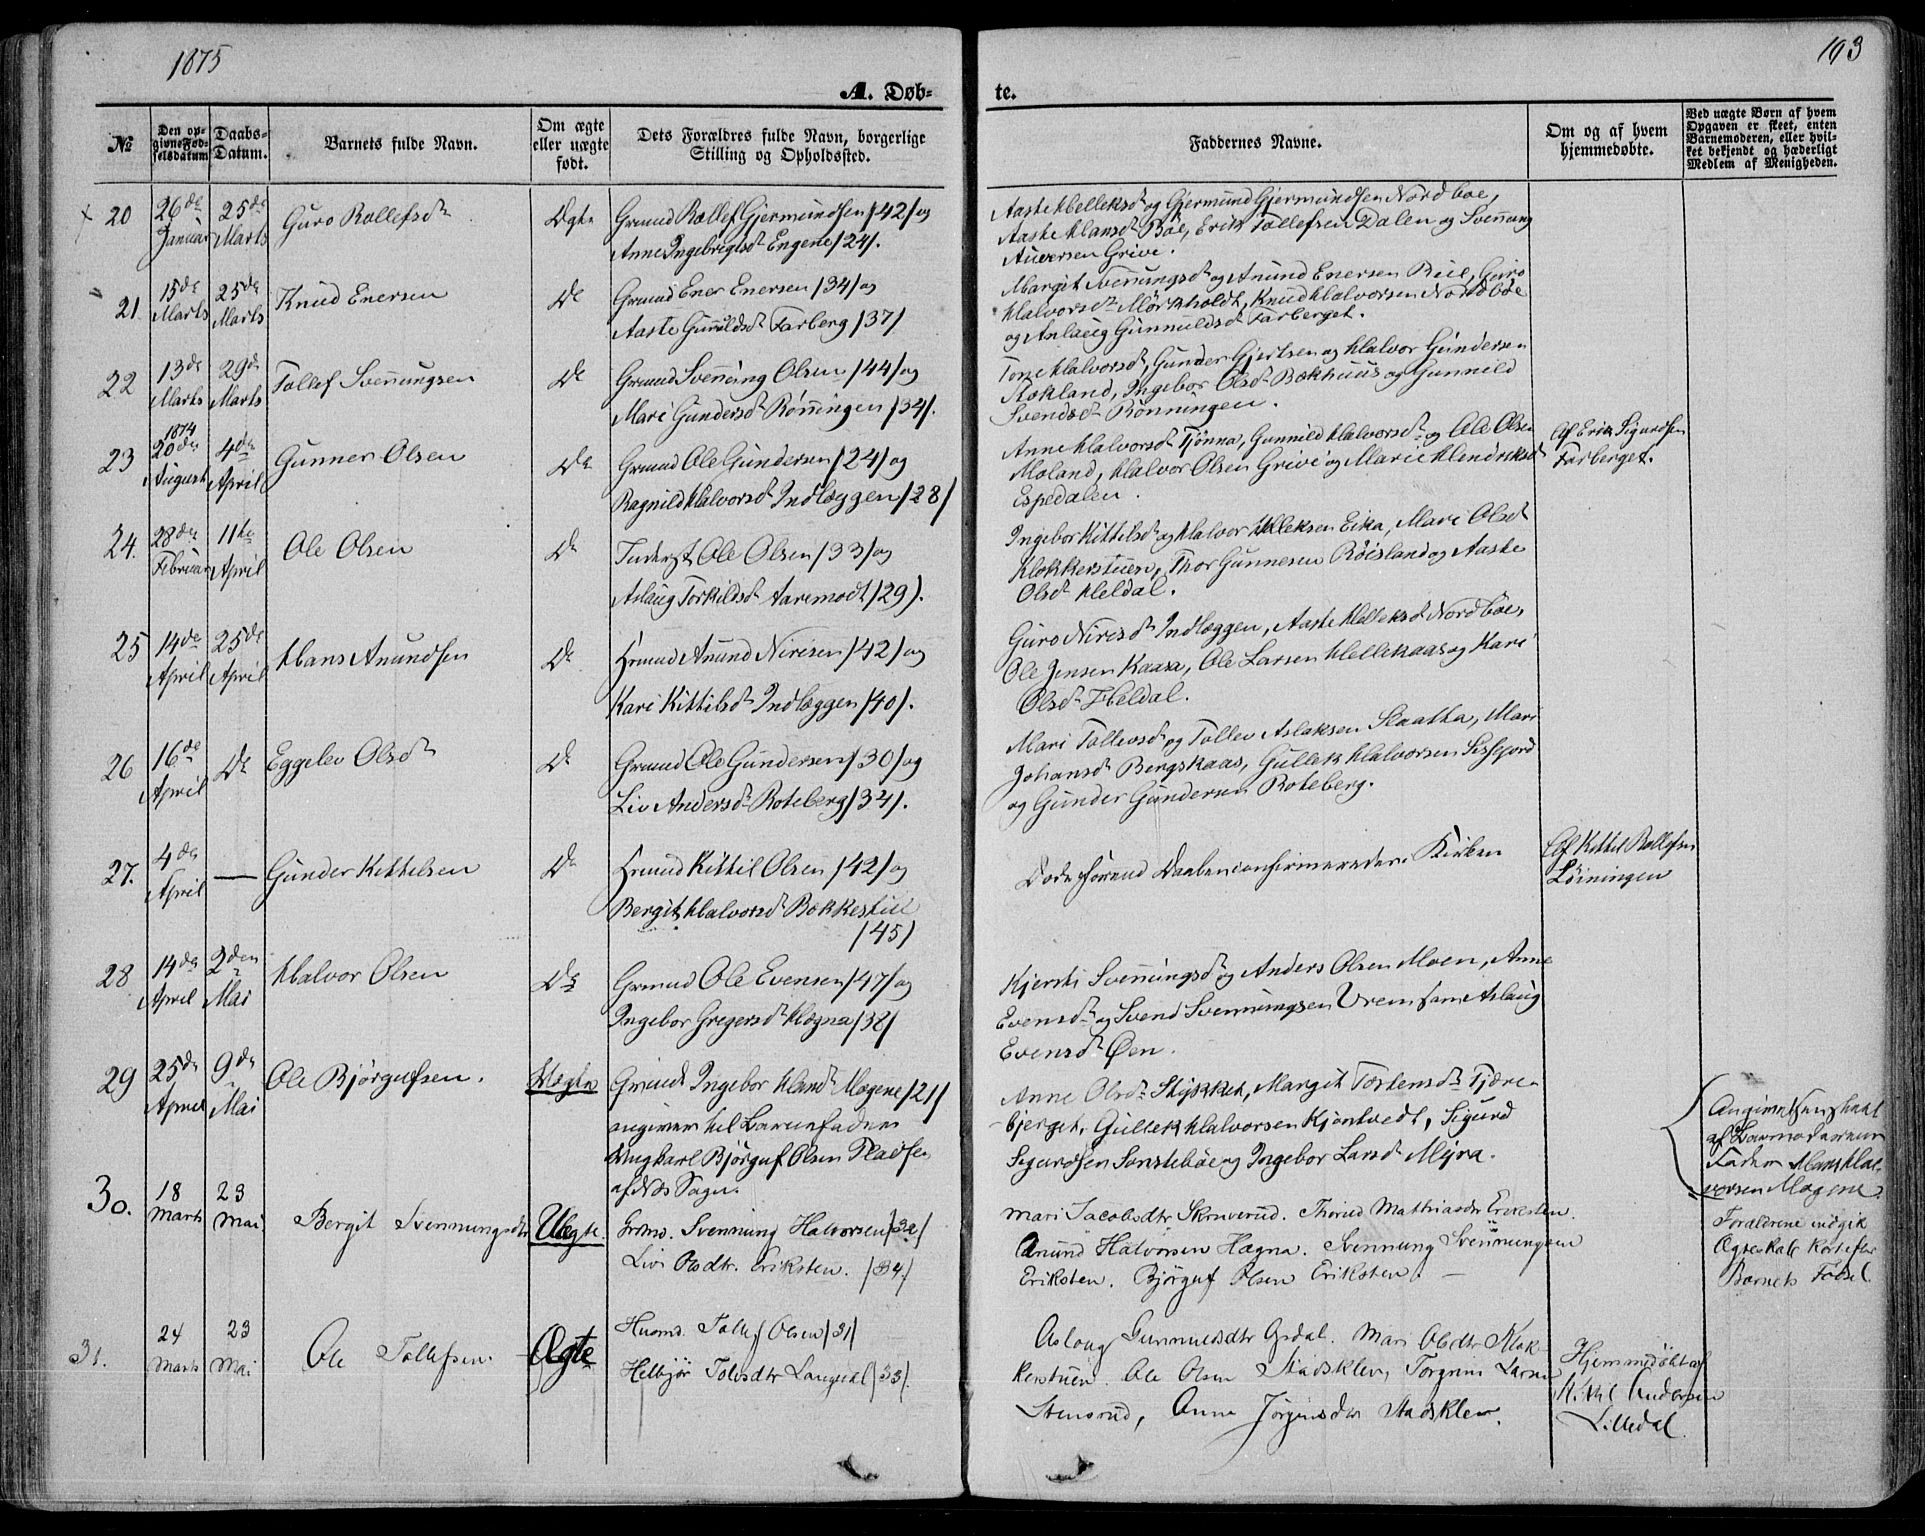 1875
193
A. Døb-
te.
№
Den op-
givne Fød-
selsdatum
Daabs-
Datum.
Barnets fulde Navn.
Om ægte
eller uægte
født.
Dets Forældres fulde Navn, borgerlige
Stilling og Opholdssted.
Faddernes Navne.
Om og af hvem
hjemmedøbte.
Ved uægte Børn af hvem
Opgaven er skeet, enten
Barnemoderen, eller hvil-
ket bekjendt og hæderligt
Medlem af Menigheden.
20
26de
Januar
25de
Marts
Guro Rollefsdt
Ægte
Grmd Rollef Gjermundsen /42/ og
Anne Ingebrigtsdt Engene /24/.
Aaste Helleksdt og Gjermund Gjermundsen Nordboe,
Aaste Hansdt Bøe, Erik Tollefsen Dalen og Svenung
Auversen Grive.
21
15de
Marts
25de
Marts
Knud Enersen
Do
Grmd Ener Enersen /34/ og
Aaste Gunuldsdt Farberg /37/
Margit Svenungsdt og Anund Enersen Bue, Guro
Halvorsdt Mørkholdt, Knud Halvorsen Nordbøe
og Anlaug Gunnuldsdt Farberget.
22
13de
Marts
29de
Marts
Tollef Svenungsen
Do
Grmd Svenung Olsen /44/ og
Mari Gundersdt Rønningen /34/.
Tone Halvorsdt, Gunder Gjertsen og Halvor Gundersen
Aokland, Ingebor Olsdt Bækhuus og Gunnild
Svendsdt Rønningen.
23
1874
20de
August
4de
April
Gunner Olsen
Do
Grmd Ole Gundersen /24/ og
Ragnild Halvorsdt Indlæggen /28/
Anne Halvorsdt Tjønna, Gunnild Halvorsdt og Ole Olsen
Moland, Halvor Olsen Grive og Marie Hendriksdt
Espedalen.
Af Erik Sigurdsen
Farberget.
24.
28de
Februar
11te
April
Ole Olsen
Do
Inderst Ole Olsen /33/ og
Aslaug Torkildsdt Aaremodt /29/.
Ingebor Kittilsdt og Halvor Helleksen Eika, Mari Olsdt
Klokkerstuen, Thor Gunnesen Røisland og Aaste
Olsdt Heldal.
25
14de
April
25de
April
Hans Anundsen
Do
Hmd Anund Nirisen /42/ og
Kari Kittilsdt Indlæggen /40/.
Guro Nirisdt Indlæggen, Aaste Helleksdt Nordbøe,
Ole Jensen Kaasa, Ole Larsen Hellekaas og Kari
Olsdt Heldal.
26
16de
April
Do
Eggelev Olsdt
Do
Grmd Ole Gundersen /30/ og
Liv Andersdt Roteberg /34/.
Mari Tollevsdt og Tollev Aslaksen Slaatha, Mari
Johansdt Bergskaas, Gullek Halvorsen Sisjord
og Gunder Gundersen Roteberg.
27.
4de
April
—
Gunder Kittelsen
Do
Hmd Kittil Olsen /42/ og
Bergit Halvorsdt Bækkestul
/45/
Døde forend Daaben confirmeredes i Kirken
Af Kittil Rollefsen
Løiningen
28
14de
April
2den
Mai
Halvor Olsen
Do
Grmd Ole Evensen /47/ og
Ingebor Gregersdt Hægna /38/
Kjersti Svenungsdt og Anders Olsen Moen, Anne
Evensdt og Svend Svennungsen Vrem samt Aslaug
Evensdt Øen.
29
25de
April
9de
Mai
Ole Bjørgufsen.
Uægte
Ingebor Hansdt Mogene /21/
angiven til Barnefader
Ungkarl Bjørguf Olsen Pladsen
Anne Olsdt Stykket, Margit Torstensdt Tjøre-
bjerget, Gullek Halvorsen Kjøntvedt, Sigurd
Sigurdsen Sønstebøe og Ingebor Larsdt Myra.
Angivelsen skeet
af Barnemoderens
Fader Hans Hal-
vorsen Mogene.
30.
18
Marts
23
Mai
Bergit Svennungsdtr
Uægte.
Grmd. Svennung Halvorsen /32/
Livi Olsdtr. Eriksten. /34/
Mari Jacobsdtr. Skruverud. Thorild Mathiasdtr Eriksten.
Anund Halvorsen Hægna. Svennung Svennungsen
Eriksten. Bjørguf Olsen Eriksten. —
Forældrene indgik
Ægteskab kort efter
Barnets Fødsel.
31.
24
Marts
23
Mai
Ole Tollefsen
Ægte
Husmd. Tollef Olsen /31/
Helbjør Tolvsdtr Langedal /33/.
Aslaug Gunnuldsdtr Opdal. Mari Olsdtr Klok-
kerstuen. Ole Olsen Stadskleiv, Torgrim Larsen
Stensrud, Anne Jørgensdtr Stadskleiv.
Hjemmedøbt af
Kittil Andersen
Lilledal.